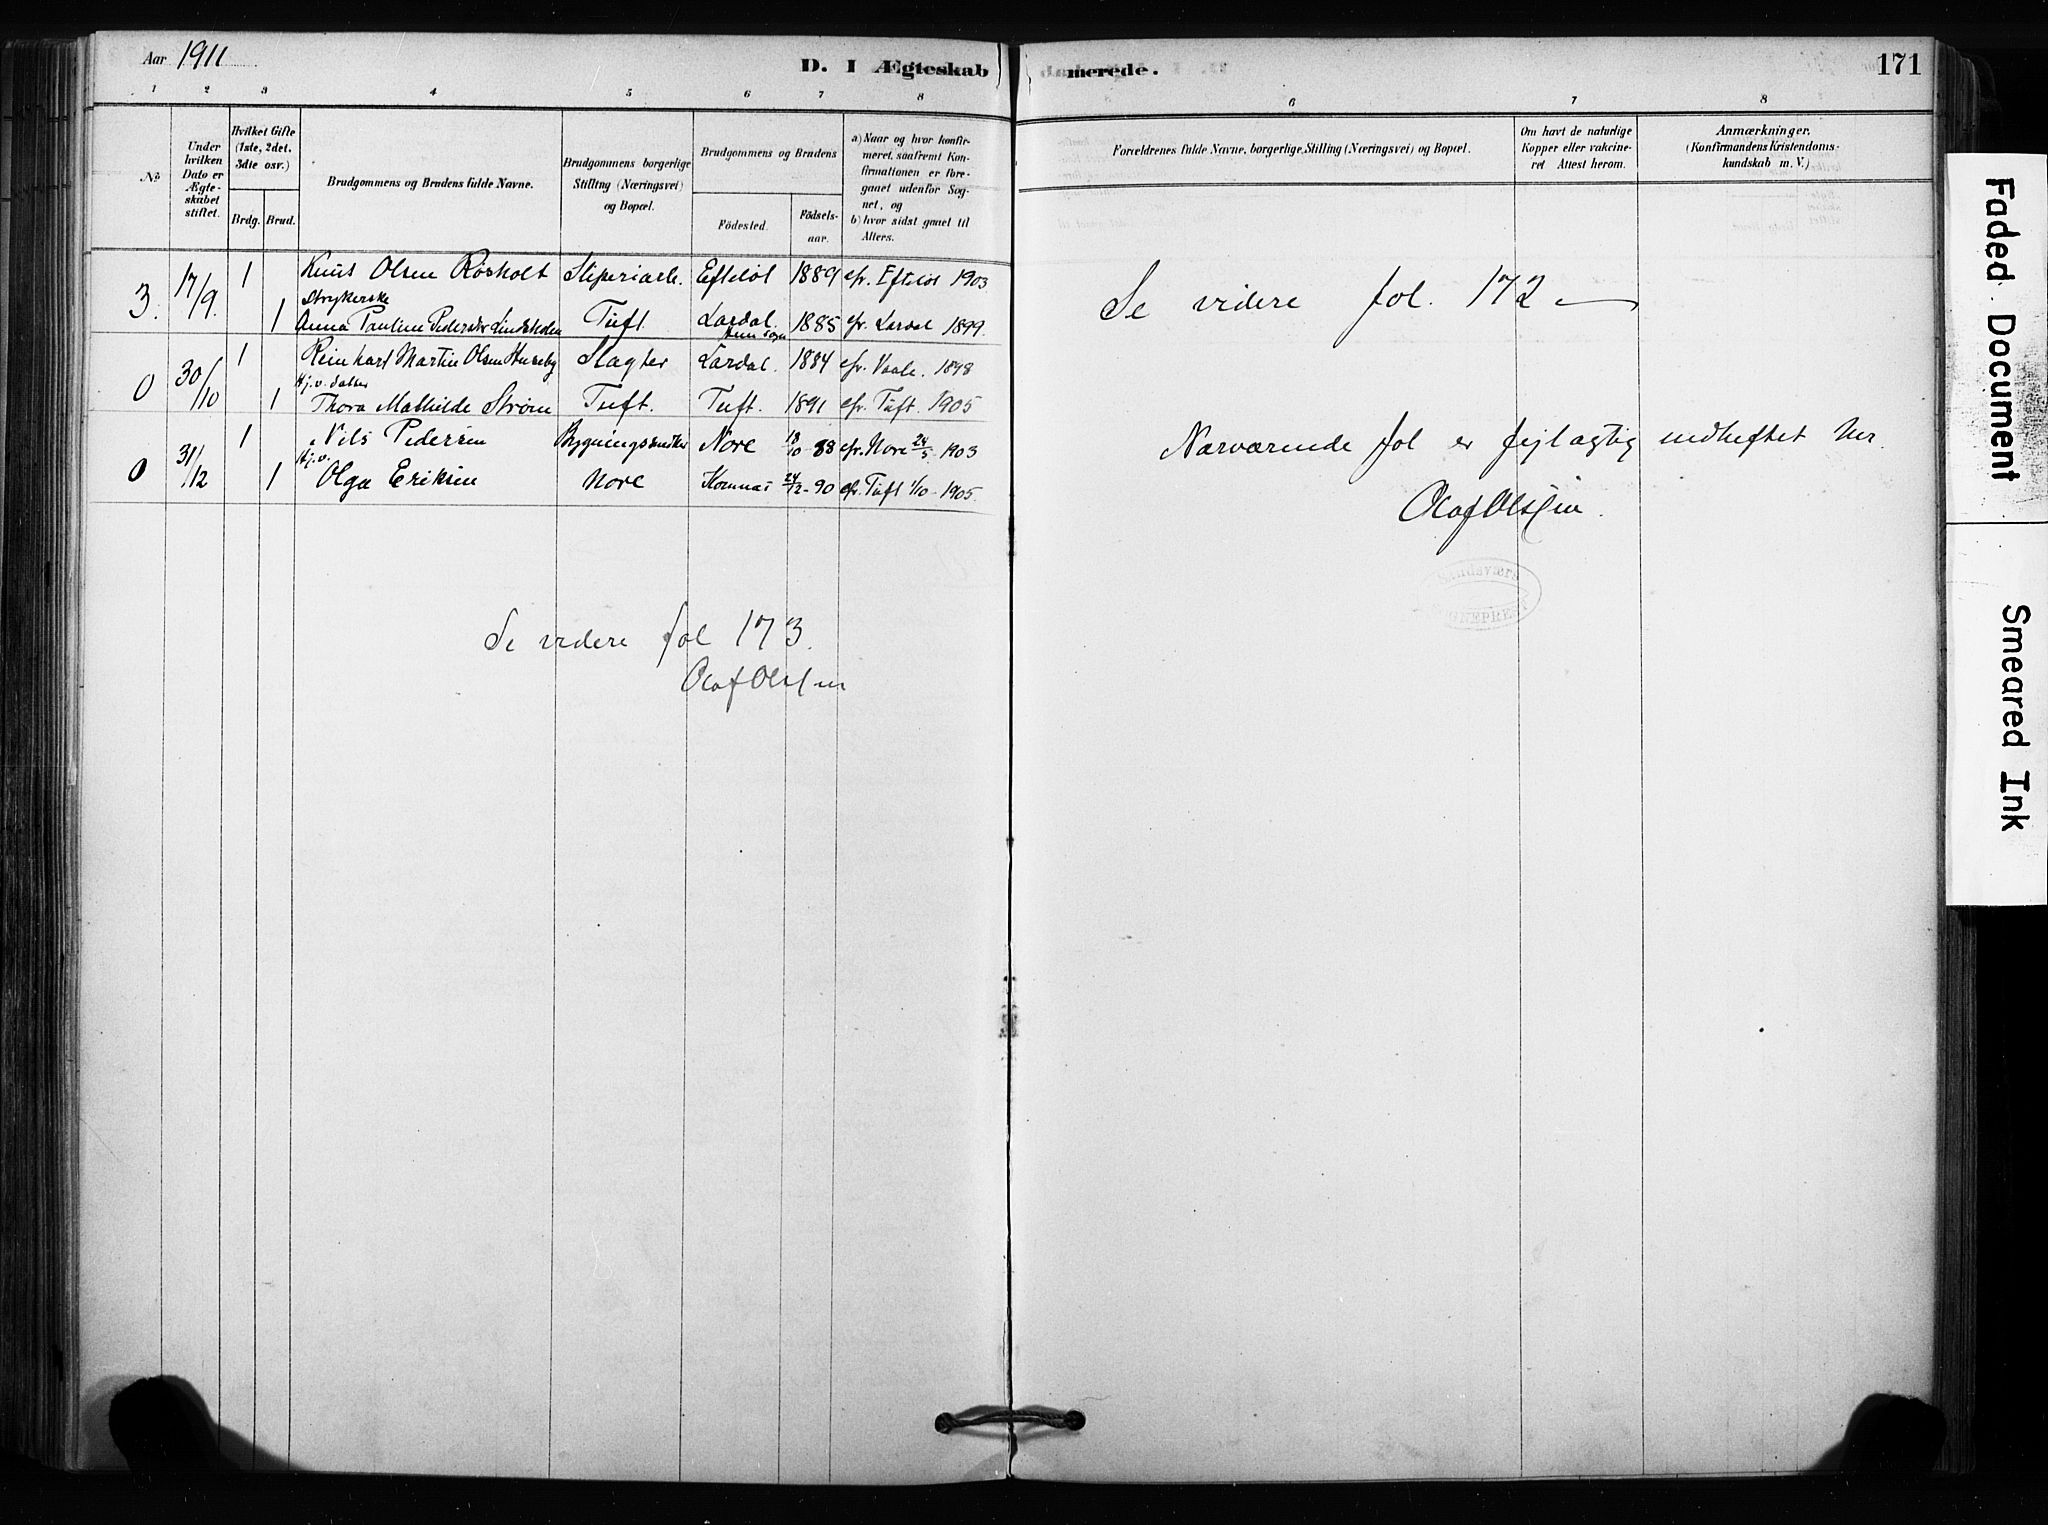 Aar 1911
D. I Ægteskab
1 2 3 4 5 6 7 8
№
Under hvilken Dato er Ægteskabet stiftet.
Hvilket Gifte (1ste, 2det, 3die osv.)
Brdg. Brud.
Brudgommens og Brudens fulde Navne.
Brudgommens borgerlige Stilling (Næringsvei) og Bopæl.
Brudgommens og Brudens
Fødested. Fødselsaar.
a) Naar og hvor konfirmeret, saafremt Konfirmationen er foregaaet udenfor Sognet, og
b) hvor sidst gaaet til Alters.
3. 17/9. 1 Knut Olsen Røsholt Sliperiarb. Efteløt 1889 cfr. Efteløt 1903
Strykerske
1 Anna Pauline Pedersdtr Lindsholm Tuft. Lardal. 1885 cfr. Lardal 1899.
Hem sogn
0 30/10 1 Reinhart Martin Olsen Huseby Slagter Lardal. 1884 cfr. Vaale. 1898
Hj.v. datter
1 Thora Mathilde Strøm Tuft. Tuft. 1891 cfr. Tuft. 1905
0 31/12 1 Nils Pedersen Bygningssnedker Nore 18/10 88 cfr. Nore 24/5 1903
Hj.v.
1 Olga Eriksen Nore Komnæs 24/12 - 90 cfr. Tuft 1/10 - 1905
Se videre fol 173.
Olaf Olssen
merede.
171
6 7 8
Forældrenes fulde Navne, borgerlige Stilling (Næringsvei) og Bopæl.
Om havt de naturlige Kopper eller vakcineret Attest herom.
Anmærkninger. (Konfirmandens Kristendomskundskab m. V.)
Se videre fol. 172
Nærværende fol er fejlagtig indheftet her.
Olaf Olssen.
Sandsværs
SOGNEPREST
Faded Document
Smeared Ink